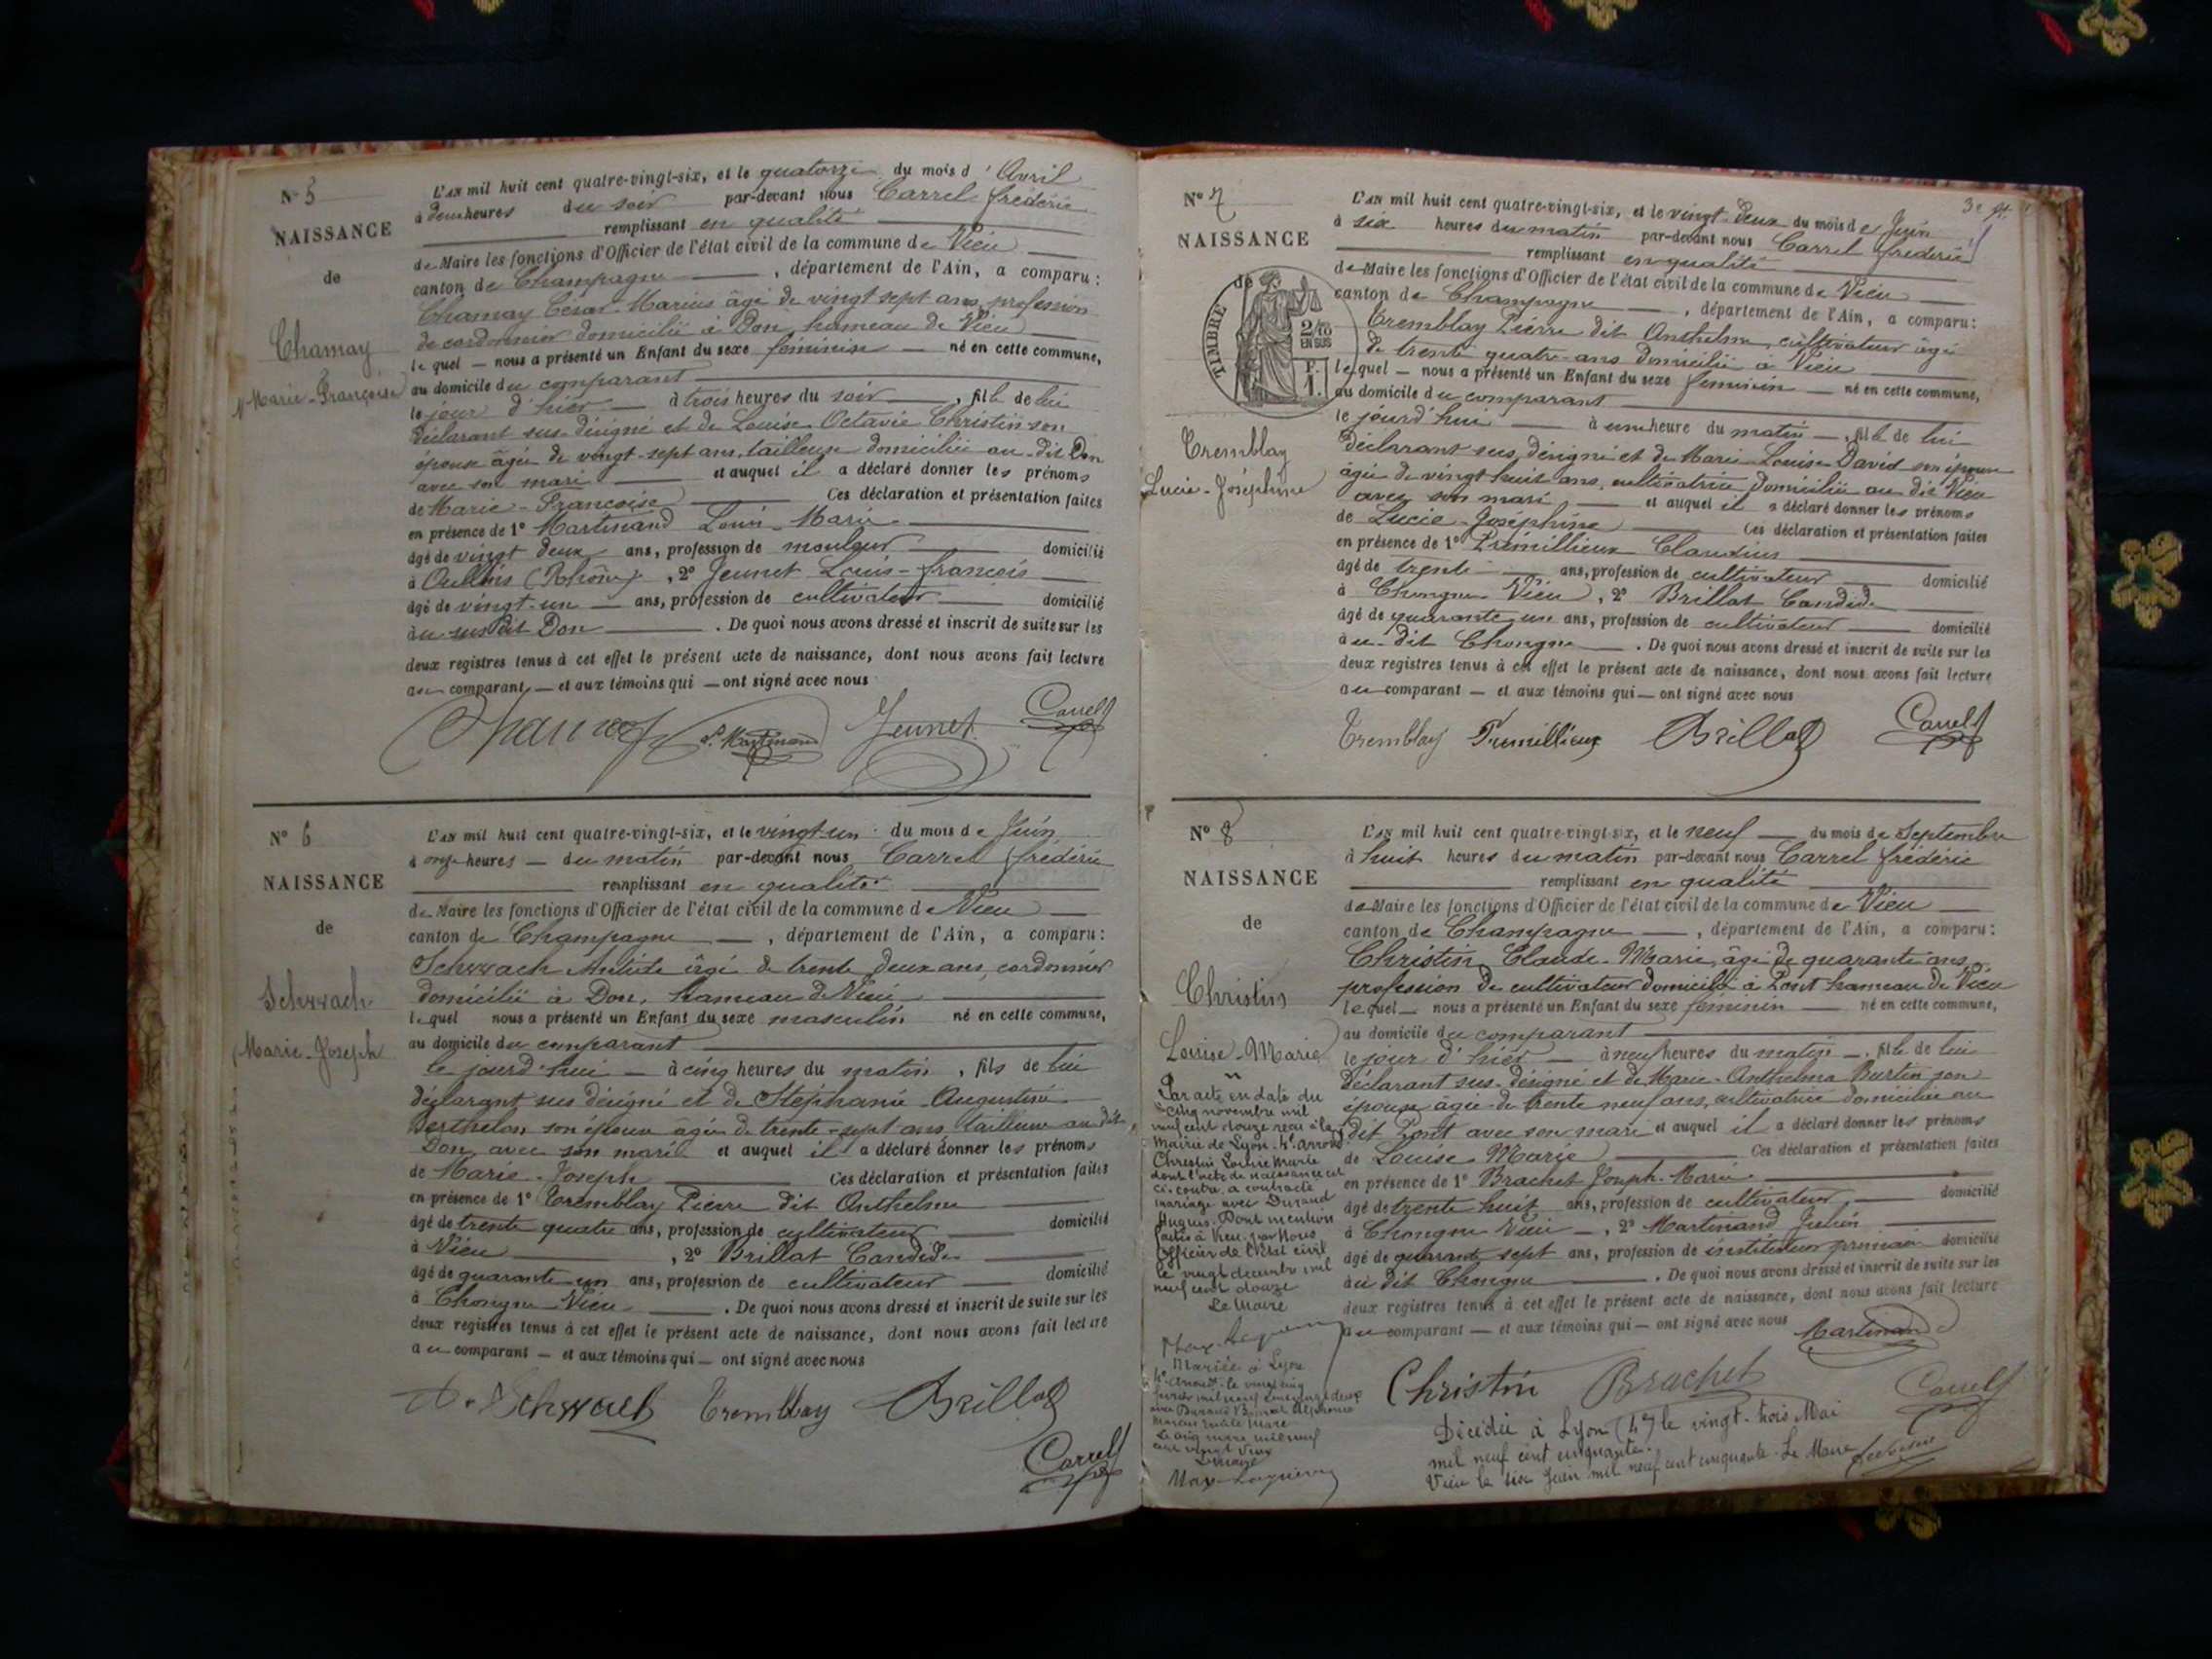 N° 5
NAISSANCE
de
Chamay
Marie-Françoise
L'AN mil huit cent quatre-vingt-six, et le quatorze du mois d'Avril
à deux heures du soir par-devant nous Carrel frédéric
remplissant en qualité
de Maire les fonctions d'Officier de l'état civil de la commune de Vieu
canton de Champagne, département de l'Ain, a comparu :
Chamay César Marius âgé de vingt sept ans, profession
de cordonnier domicilié à Don, hameau de Vieu
lequel — nous a présenté un Enfant du sexe féminin — né en cette commune,
au domicile du comparant
le jour d'hier — à trois heures du soir —, fille de lui
déclarant sus-désigné et de Louise Octavie Christin son
épouse âgée de vingt-sept ans, tailleuse domiciliée au-dit Don
avec son mari — et auquel il a déclaré donner les prénoms
de Marie-Françoise — Ces déclaration et présentation faites
en présence de 1° Martinand Louis Marie
âgé de vingt deux ans, profession de mouleur — domicilié
à Oullins (Rhône), 2° Jeunet Louis-françois
âgé de vingt-un — ans, profession de cultivateur — domicilié
au susdit Don — . De quoi nous avons dressé et inscrit de suite sur les
deux registres tenus à cet effet le présent acte de naissance, dont nous avons fait lecture
au comparant, — et aux témoins qui — ont signé avec nous
Chamay L. Martinand Jeunet Carrel
N° 6
NAISSANCE
de
Schwach
Marie-Joseph
L'AN mil huit cent quatre-vingt-six, et le vingt-un du mois de Juin
à onze heures — du matin par-devant nous Carrel frédéric
remplissant en qualité
de Maire les fonctions d'Officier de l'état civil de la commune de Vieu
canton de Champagne —, département de l'Ain, a comparu :
Schwach Antide âgé de trente deux ans, cordonnier
domicilié à Don, hameau de Vieu
lequel nous a présenté un Enfant du sexe masculin né en cette commune,
au domicile du comparant
le jourd'hui — à cinq heures du matin, fils de lui
déclarant sus désigné et de Stéphanie Augustine
Berthelon son épouse agée de trente-sept ans tailleuse au dit
Don, avec son mari et auquel il a déclaré donner les prénoms
de Marie-Joseph — Ces déclaration et présentation faites
en présence de 1° Tremblay Pierre dit Anthelme
âgé de trente quatre ans, profession de cultivateur — domicilié
à Vieu —, 2° Brillat Candide
âgé de quarante-un ans, profession de cultivateur — domicilié
à Chongne Vieu — . De quoi nous avons dressé et inscrit de suite sur les
deux registres tenus à cet effet le présent acte de naissance, dont nous avons fait lecture
au comparant — et aux témoins qui — ont signé avec nous
A. Schwach Tremblay Brillat
Carrel
N° 7
NAISSANCE
de
TIMBRE
2/10
EN SUS
Tremblay
Lucie-Joséphine
L'AN mil huit cent quatre-vingt-six, et le vingt-deux du mois de Juin
à six heures du matin par-devant nous Carrel frédéric
remplissant en qualité
de Maire les fonctions d'Officier de l'état civil de la commune de Vieu
canton de Champagne —, département de l'Ain, a comparu :
Tremblay Pierre dit Anthelme, cultivateur âgé
de trente quatre-ans domicilié à Vieu
lequel — nous a présenté un Enfant du sexe féminin — né en cette commune,
au domicile du comparant
le jourd'hui — à une heure du matin —, fille de lui
déclarant sus désigné et de Marie Louise David son épouse
âgée de vingt huit ans, cultivatrice domiciliée au dit Vieu
avec son mari — et auquel il a déclaré donner les prénoms
de Lucie-Joséphine — Ces déclaration et présentation faites
en présence de 1° Prémillieux Claudius
âgé de trente — ans, profession de cultivateur — domicilié
à Chongne Vieu, 2° Brillat Candide
âgé de quarante-un ans, profession de cultivateur — domicilié
au-dit Chongne — . De quoi nous avons dressé et inscrit de suite sur les
deux registres tenus à cet effet le présent acte de naissance, dont nous avons fait lecture
au comparant — et aux témoins qui — ont signé avec nous
Tremblay Prémillieux Brillat Carrel
N° 8
NAISSANCE
de
Christin
Louise-Marie
Par acte en date du
cinq novembre mil
neuf cent douze reçu à la
Mairie de Lyon 4e arrond
Christin Louise Marie
dont l'acte de naissance est
ci-contre a contracté
mariage avec Durand
Dont mention
faite à Vieu par Nous
Officier de l'état civil
le vingt decembre mil
neuf cent douze
Le Maire
Mariée à Lyon
L'AN mil huit cent quatre-vingt-six, et le neuf — du mois de Septembre
à huit heures du matin par-devant nous Carrel frédéric
remplissant en qualité
de Maire les fonctions d'Officier de l'état civil de la commune de Vieu
canton de Champagne —, département de l'Ain, a comparu :
Christin Claude-Marie, âgé de quarante ans,
profession de cultivateur domicilié à Pont hameau de Vieu
lequel — nous a présenté un Enfant du sexe féminin — né en cette commune,
au domicile du comparant
le jour d'hier — à neuf heures du matin —, fille de lui
déclarant sus-désigné et de Marie-Anthelma Burtin son
épouse âgée de trente neuf ans, cultivatrice domiciliée au
dit Pont avec son mari et auquel il a déclaré donner les prénoms
de Louise-Marie — Ces déclaration et présentation faites
en présence de 1° Brachet Joseph-Marie
âgé de trente huit ans, profession de cultivateur, — domicilié
à Chongne Vieu —, 2° Martinand Julien
âgé de quarante sept ans, profession de instituteur primaire domicilié
au dit Chongne — . De quoi nous avons dressé et inscrit de suite sur les
deux registres tenus à cet effet le présent acte de naissance, dont nous avons fait lecture
au comparant — et aux témoins qui — ont signé avec nous Martinand
Christin Brachet Carrel
Décédée à Lyon (4e) le vingt-trois Mai
mil neuf cent cinquante.
Vieu le six Juin mil neuf cent cinquante. Le Maire